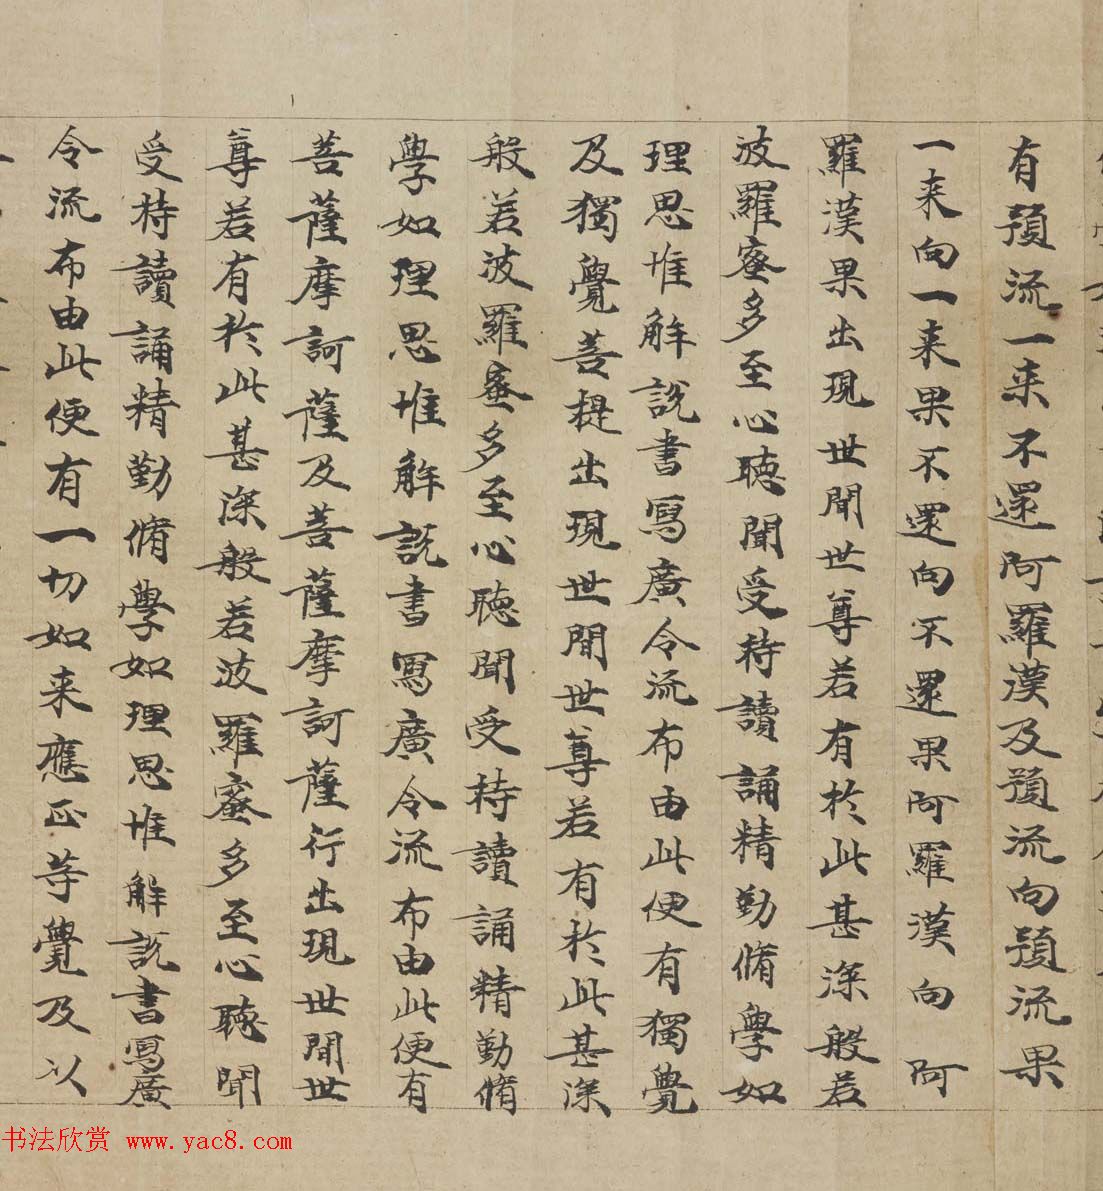 有預流一来不還阿羅漢及預流向預流果
一来向一来果不還向不還果阿羅漢向阿
羅漢果出現世間世尊若有於此甚深般若
波羅蜜多至心聽聞受持讀誦精勤脩學如
理思惟解說書寫廣令流布由此便有獨覺
及獨覺菩提出現世間世尊若有於此甚深
般若波羅蜜多至心聽聞受持讀誦精勤脩
學如理思惟解說書寫廣令流布由此便有
菩薩摩訶薩及菩薩摩訶薩行出現世間世
尊若有於此甚深般若波羅蜜多至心聽聞
受持讀誦精勤脩學如理思惟解說書寫廣
令流布由此便有一切如来應正等覺及以
书法欣赏 www.yac8.com